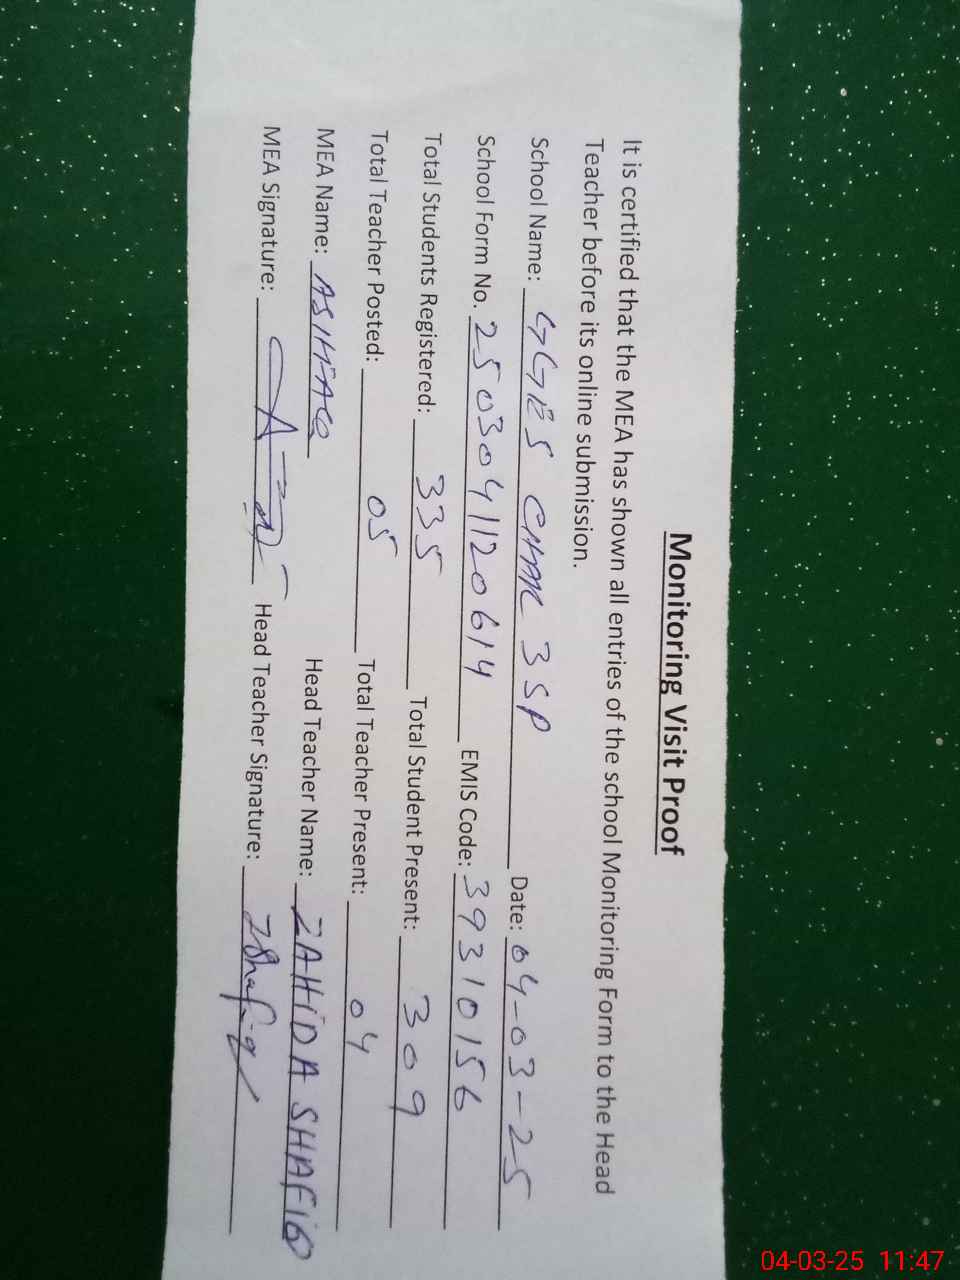 Monitoring Visit Proof
It is certified that the MEA has shown all entries of the school Monitoring Form to the Head
Teacher before its online submission.
School Name: GGES CHAK 3 SP Date: 04-03-25
School Form No. 2503041120614 EMIS Code: 39310156
Total Students Registered: 335 Total Student Present: 309
Total Teacher Posted: 05 Total Teacher Present: 04
MEA Name: ASHFAQ Head Teacher Name: ZAHIDA SHAFIQ
MEA Signature: Head Teacher Signature: ZShafiq
04-03-25 11:47